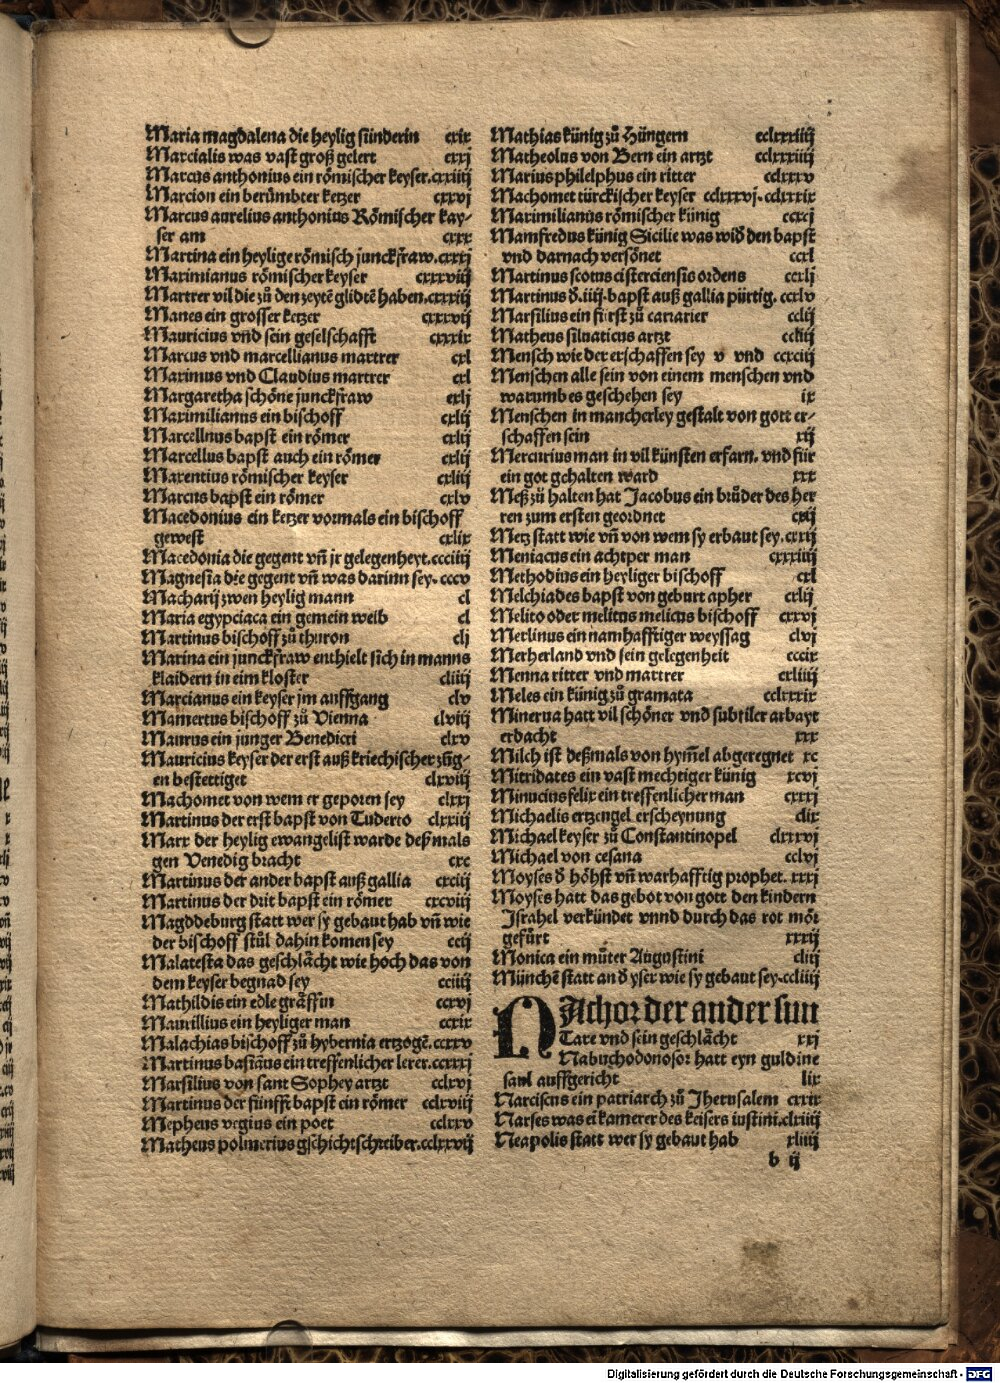 Maria magdalena die heylig sünderin cxix
Marcialis was vast groß gelert cxxj
Marcus anthonius ein römischer keyser. cxxiiij
Marcion ein berümbter ketzer cxxvj
Marcus aurelius anthonius Römischer kay-
ser am cxxx
Martina ein heylige römisch junckfraw. cxxxj
Maximianus römischer keyser cxxxviij
Martrer vil die zů den zeytē glidtē haben. cxxxiij
Manes ein grosser ketzer cxxxvij
Mauricius vnd sein geselschafft cxxxix
Marcus vnd marcellianus martrer cxl
Maximus vnd Claudius martrer cxl
Margaretha schöne junckfraw cxlj
Maximilianus ein bischoff cxlij
Marcellnus bapst ein römer cxlij
Marcellus bapst auch ein römer cxlij
Maxentius römischer keyser cxliij
Marcus bapst ein römer cxlv
Macedonius ein ketzer vormals ein bischoff
gewest cxlix
Macedonia die gegent vñ jr gelegenheyt. ccciiij
Magnesia die gegent vñ was darinn sey. cccv
Macharij zwen heylig mann cl
Maria egypciaca ein gemein weib cl
Martinus bischoff zů thuron clj
Marina ein junckfraw enthielt sich in manns
klaidern in eim kloster cliiij
Marcianus ein keyser jm auffgang clv
Mamertus bischoff zů Vienna clviij
Maurus ein junger Benedicti clxv
Mauricius keyser der erst auß kriechischer zůg-
en bestettiget clxviij
Machomet von wem er geporen sey clxxj
Martinus der erst bapst von Tuderto clxxiij
Marx der heylig ewangelist warde deßmals
gen Venedig bracht cxc
Martinus der ander bapst auß gallia cxciij
Martinus der drit bapst ein römer cxcviij
Magddeburg statt wer sy gebaut hab vñ wie
der bischoff stůl dahin komen sey ccij
Malatesta das geschlächt wie hoch das von
dem keyser begnad sey cciiij
Mathildis ein edle gräffin ccxvj
Maurillius ein heyliger man ccxix
Malachias bischoff zů hybernia ertzogē. ccxxv
Martinus basiāus ein treffenlicher lerer. ccxxxj
Marsilius von sant Sophey artzt cclxvj
Martinus der fünfft bapst ein römer cclxviij
Mepheus vegius ein poet cclxxv
Matheus polmerius gschichtschreiber. cclxxvij
Mathias künig zů Hüngern cclxxxiiij
Matheolus von Bern ein artzt cclxxxiiij
Marius philelphus ein ritter cclxxxv
Machomet türckischer keyser cclxxxvj. cclxxxix
Maximilianus römischer künig ccxcj
Mamfredus künig Sicilie was wiđ den bapst
vnd darnach versönet ccxl
Martinus scotus cisterciensis ordens ccxlj
Martinus đ. iiij. bapst auß gallia pürtig. ccxlv
Marsilius ein fürst zů carrarier cclij
Matheus siluaticus artzt cclxij
Mensch wie der erschaffen sey v vnd ccxciij
Menschen alle sein von einem menschen vnd
warumb es geschehen sey ix
Menschen in mancherley gestalt von gott er-
schaffen sein xij
Mercurius man in vil künsten erfarn. vnd für
ein got gehalten ward xxx
Meß zů halten hat Jacobus ein brůder des her
ren zum ersten geordnet cxij
Metz statt wie vñ von wem sy erbaut sey. cxxij
Meniacus ein achtper man cxxxiiij
Methodius ein heyliger bischoff cxl
Melchiades bapst von geburt apher cxlij
Melito oder melitus melicus bischoff cxxvj
Merlinus ein namhafftiger weyssag clvj
Merherland vnd sein gelegenheit cccix
Menna ritter vnd martrer cxliiij
Meles ein künig zů gramata cclxxxix
Minerua hatt vil schöner vnd subtiler arbayt
erdacht xxx
Milch ist deßmals von hym̄el abgeregnet xc
Mitridates ein vast mechtiger künig xcvj
Minucius felix ein treffenlicher man cxxxj
Michaelis ertzengel erscheynung clix
Michael keyser zů Constantinopel clxxxvj
Michael von cesana cclvj
Moyses đ höhst vñ warhafftig prophet. xxxj
Moyses hatt das gebot von gott den kindern
Jsrahel verkündet vnnd durch das rot mör
gefürt xxxij
Monica ein můter Augustini cliij
Münchē statt an đ yser wie sy gebaut sey. ccliiij
NAchor der ander sun
Tare vnd sein geschlächt xxj
Nabuchodonosor hatt eyn guldine
saul auffgericht lix
Narciscus ein patriarch zů Jherusalem cxxix
Narses was eī kamerer des keisers iustini. clxiiij
Neapolis statt wer sy gebaut hab xliiij
b ij
Digitalisierung gefördert durch die Deutsche Forschungsgemeinschaft - DFG